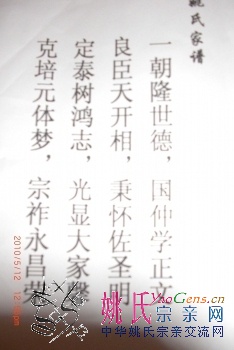 姚氏家谱
一朝隆世德，国仲学正文
良臣天开相，秉怀佐圣明
定泰树鸿志，光显大家
克培元体梦，宗祚永昌
2010/5/12
YaoGens.cn
姚氏宗亲网
中华姚氏宗亲交流网